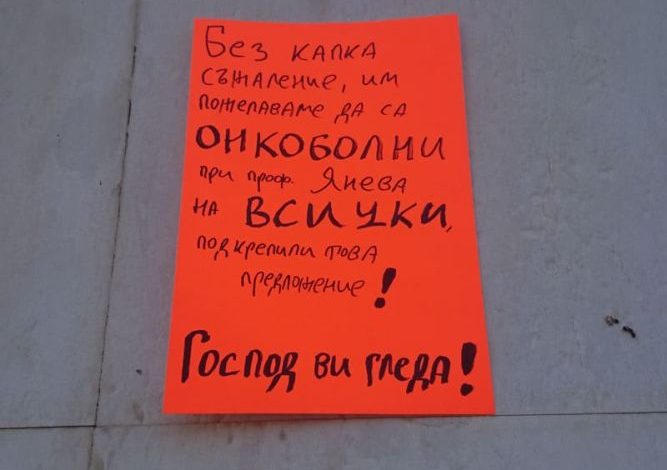 Без капка
съжаление, им
пожелаваме да са
ОНКОБОЛНИ
при проф. Янева
на ВСИЧКИ,
подкрепили това
предложение!
Господ ви гледа!